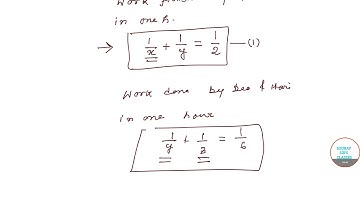 Work
in one h.
→ 1/x + 1/y = 1/2 —(1)
Work done by Geo & Hari
in one hour
1/y + 1/z = 1/6